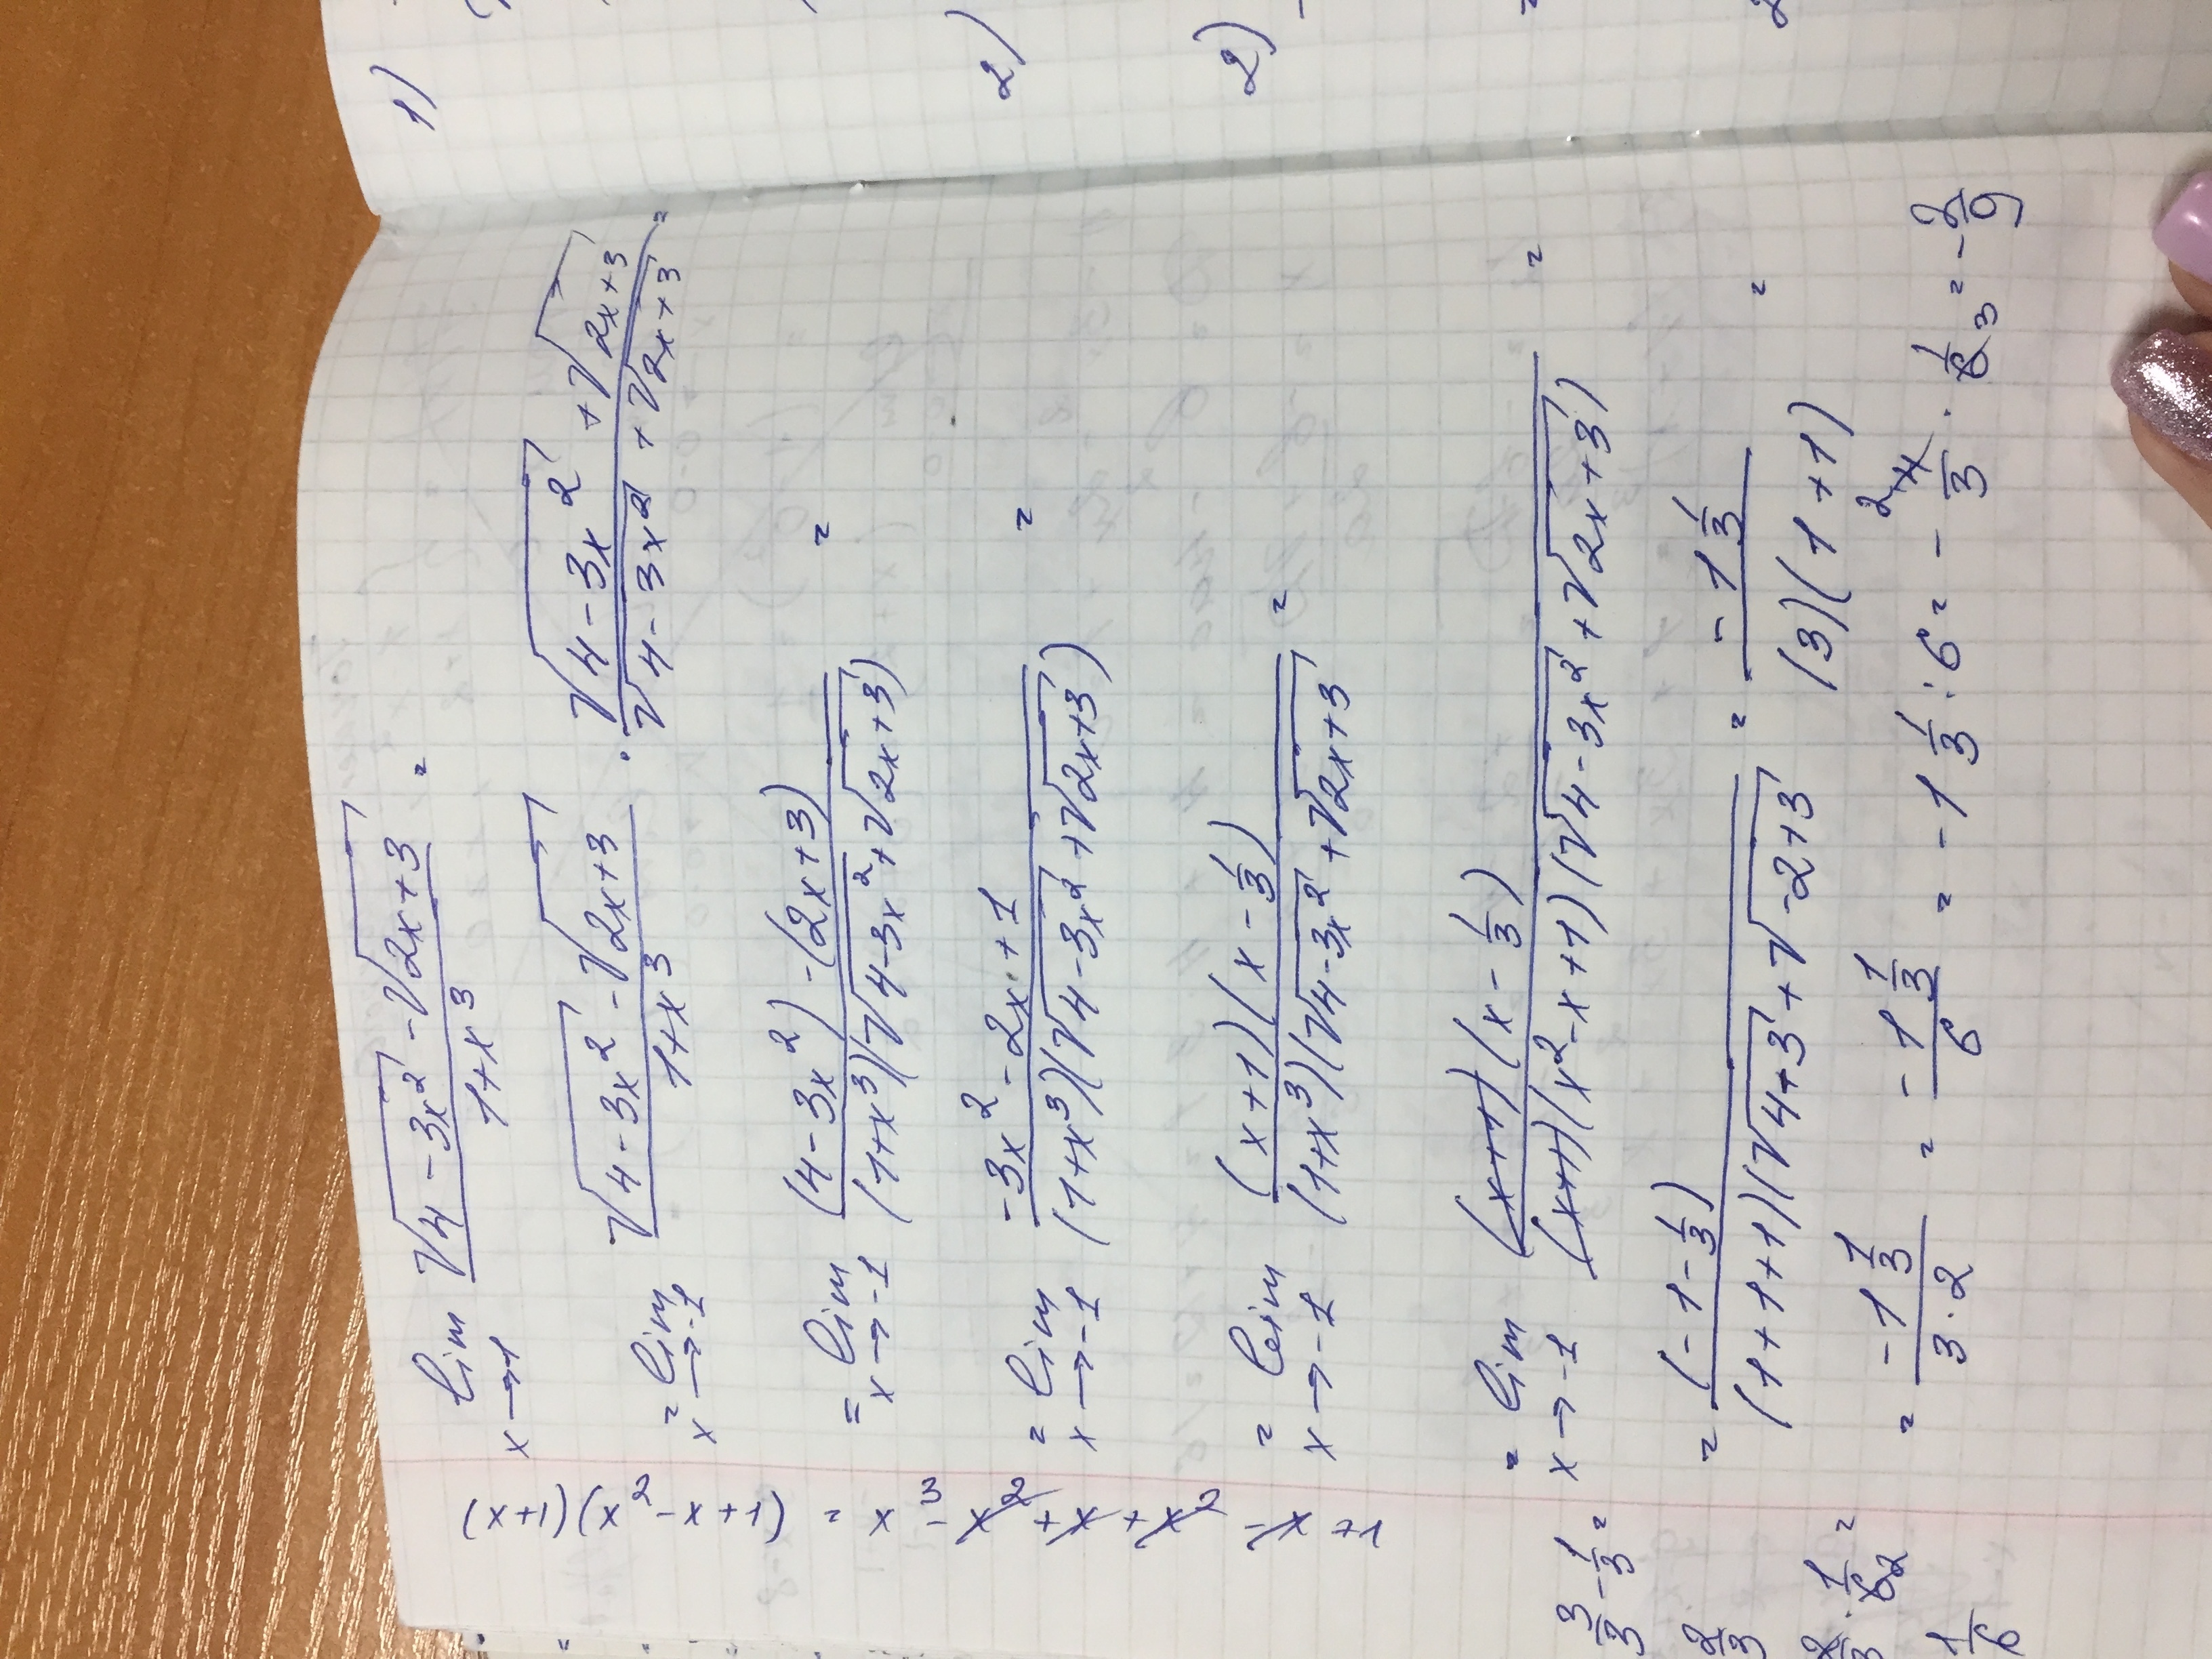 1)
2)
2)
(x+1)(x² - x + 1) = x³ - x² + x + x² - x + 1
lim x→1 (√(4-3x²) - √(2x+3)) / (1+x³) =
= lim x→-1 (√(4-3x²) - √(2x+3)) / (1+x³) · (√(4-3x²) + √(2x+3)) / (√(4-3x²) + √(2x+3)) =
= lim x→-1 ((4-3x²) - (2x+3)) / ((1+x³)(√(4-3x²) + √(2x+3))) =
= lim x→-1 (-3x² - 2x + 1) / ((1+x³)(√(4-3x²) + √(2x+3))) =
= lim x→-1 (x+1)(x - 1/3) / ((1+x³)(√(4-3x²) + √(2x+3)) =
= lim x→-1 (x+1)(x - 1/3) / ((x+1)(x² - x + 1)(√(4-3x²) + √(2x+3))) =
= (-1 - 1/3) / ((1+1+1)(√(4+3) + √(-2+3)) = -1 1/3 / (3)(1+1) =
= -1 1/3 / 3·2 = -1 1/3 / 6 = -1 1/3 : 6 = - 4/3 · 1/6 3 = - 2/9
3/3 - 1/3 =
2/3
2/3 · 1/6 2 =
1/6